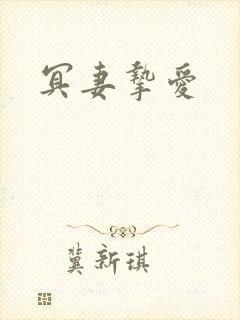 冥妻摯愛
冀新琪